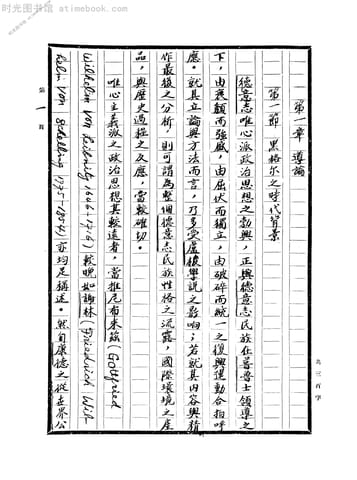 时光图书馆 - atimebook.com
时光图书馆 - atimebook.com
共三百字
第一章 導論
第一節 黑格尔之時代背景
德意志唯心派政治思想之勃興,正與德意志民族在普魯士領導之
下,由衰頹而强盛,由屈伏而獨立,由破碎而統一之復興運動合拍呼
應。就其立論與方法而言,乃多受盧梭學說之影响;若就其內容與精
作最後之分析,則可謂為整個德意志民族性格之流露,國際環境之產
品,與歷史過程之反應,當較確切。
唯心主義派之政治思想其較遠者,當推尼布來兹(Gottfried
Wilhelm von Leibnitz 1646-1716)較晚如謝林(Friedrich Wil-
helm von Schelling 1775-1854)亦均足稱述。然自康德之從世界公
第 1 頁